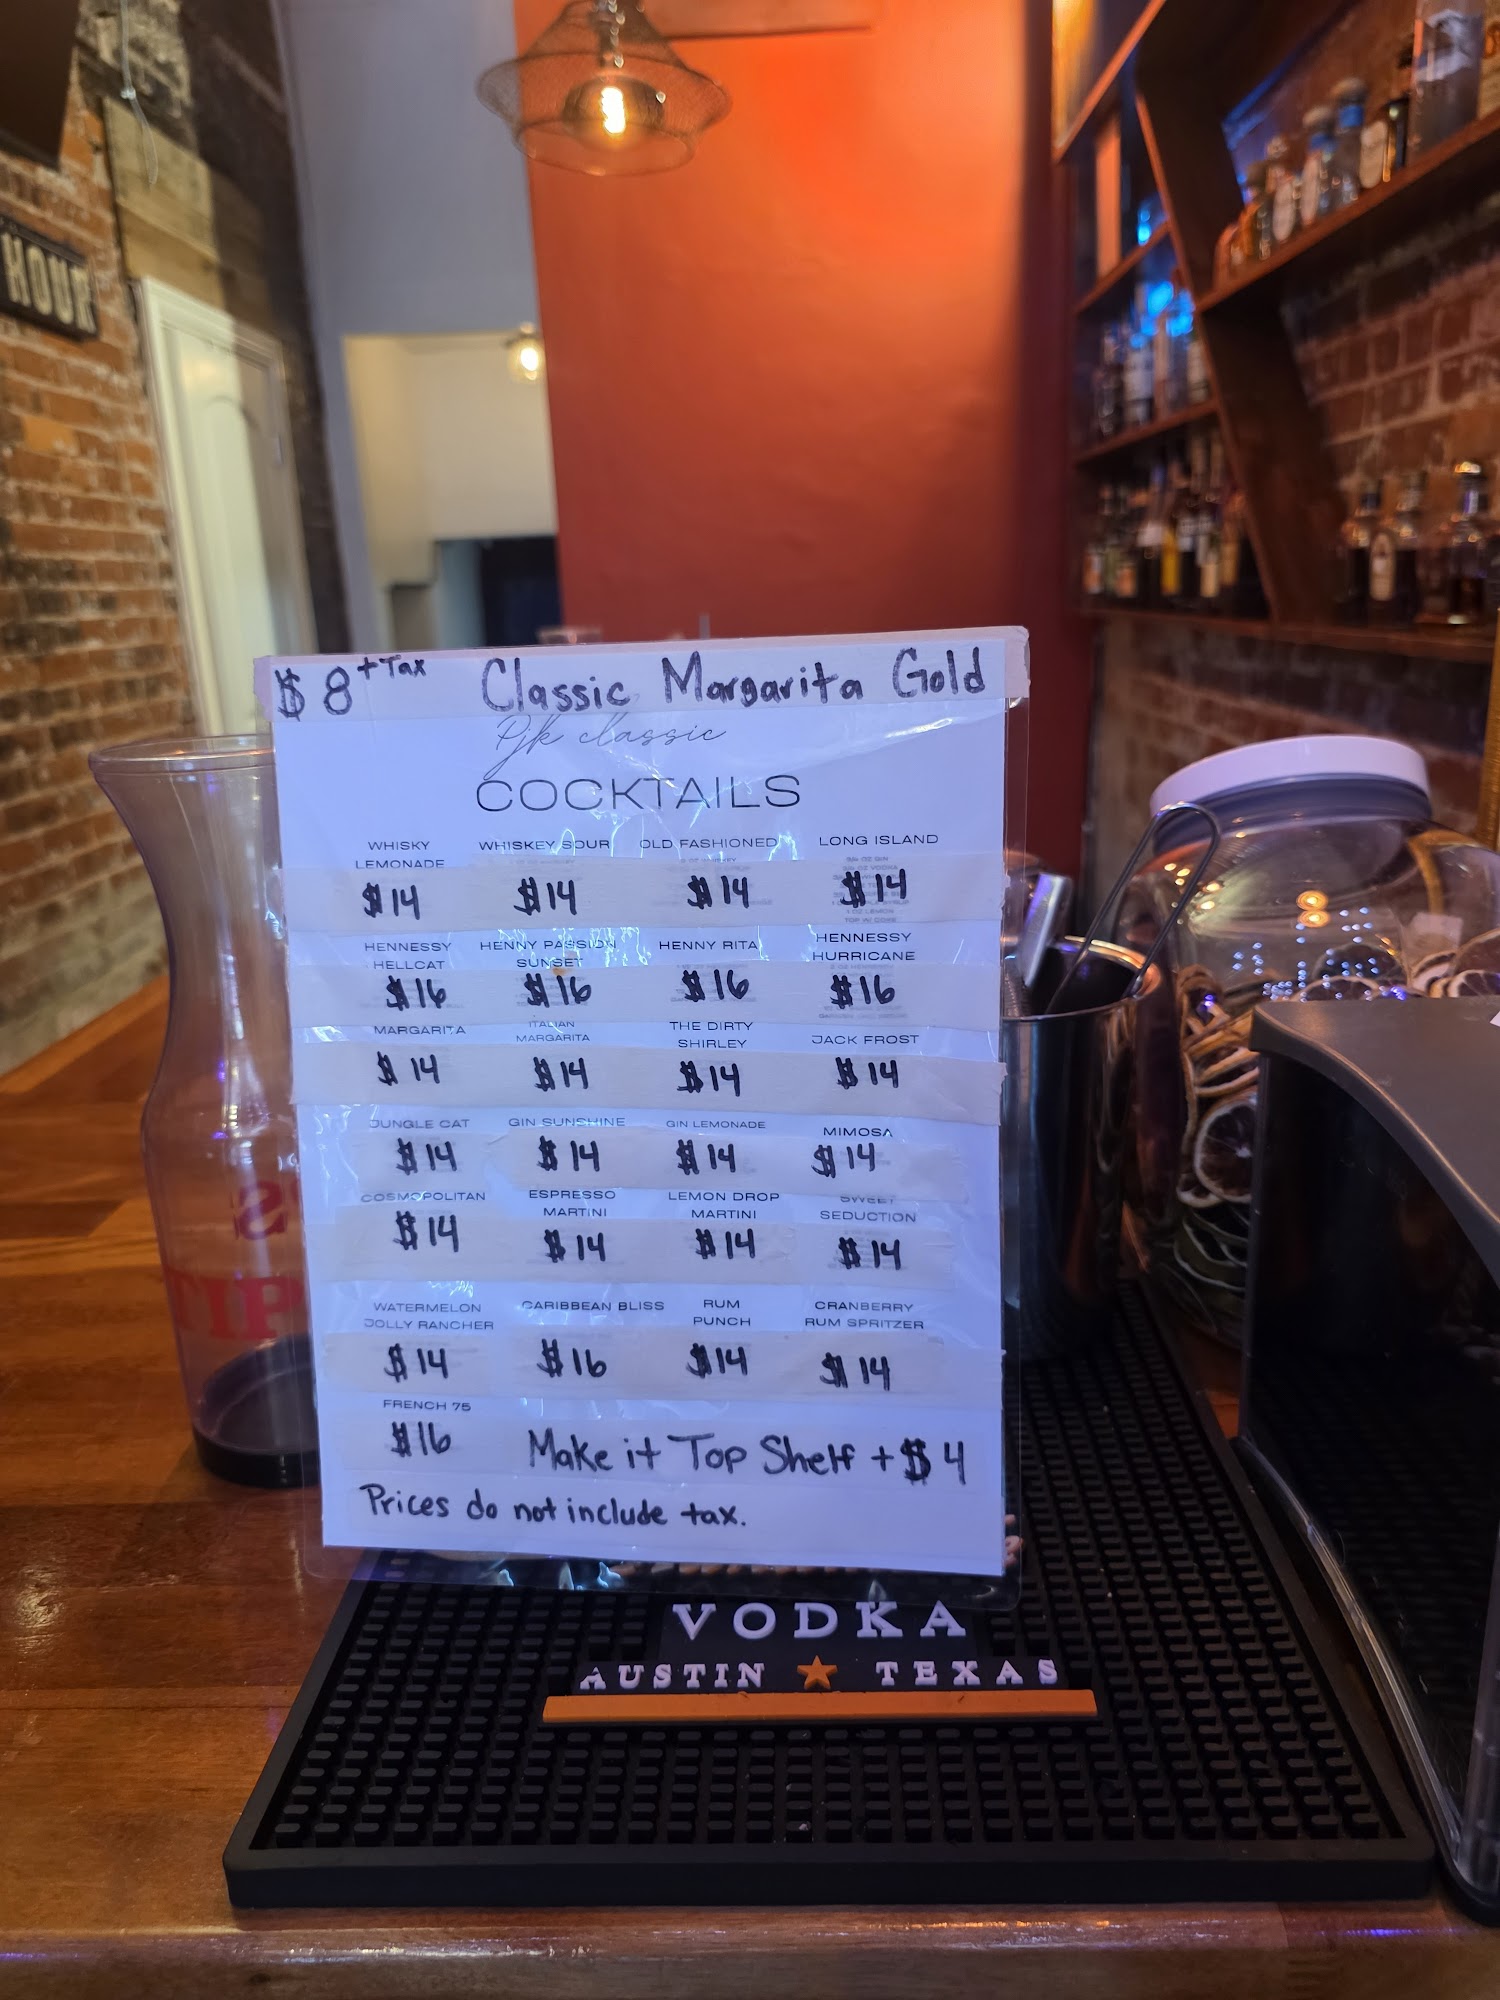 HOUR
$8 +Tax Classic Margarita Gold
Pjk classic
COCKTAILS
WHISKY WHISKEY SOUR OLD FASHIONED LONG ISLAND
LEMONADE
$14 $14 $14 $14
HENNESSY HENNY PASSION HENNY RITA HENNESSY
HELLCAT SUNSET HURRICANE
$16 $16 $16 $16
MARGARITA ITALIAN THE DIRTY JACK FROST
MARGARITA SHIRLEY
$14 $14 $14 $14
JUNGLE CAT GIN SUNSHINE GIN LEMONADE MIMOSA
$14 $14 $14 $14
COSMOPOLITAN ESPRESSO LEMON DROP SWEET
MARTINI MARTINI SEDUCTION
$14 $14 $14 $14
WATERMELON CARIBBEAN BLISS RUM CRANBERRY
JOLLY RANCHER PUNCH RUM SPRITZER
$14 $16 $14 $14
FRENCH 75
$16 Make it Top Shelf + $4
Prices do not include tax.
TIP
VODKA
AUSTIN TEXAS